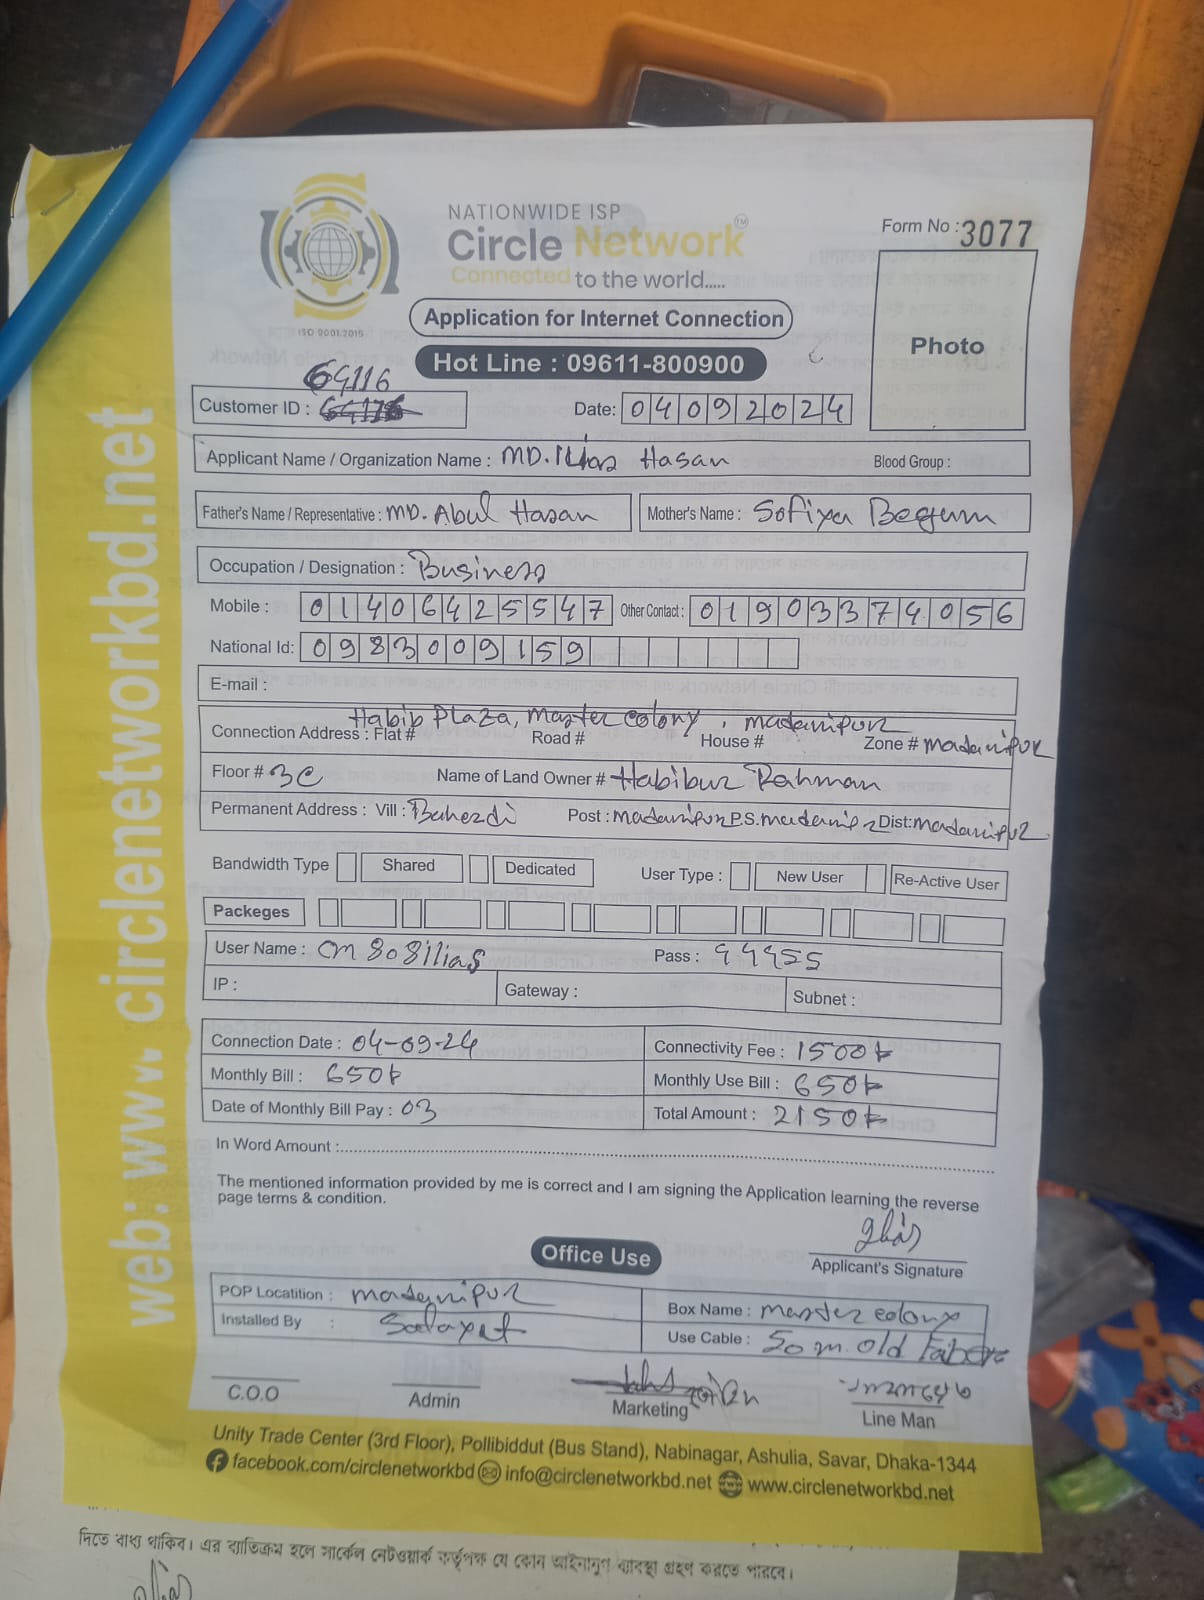 NATIONWIDE ISP
Circle Network TM
Connected to the world.....
ISO 9001:2015
Form No : 3077
Application for Internet Connection
Hot Line : 09611-800900
Photo
64116
Customer ID :
Date: 04092024
Applicant Name / Organization Name : MD. Ilias Hasan Blood Group :
Father's Name / Representative : MD. Abul Hasan Mother's Name : Sofiya Begum
Occupation / Designation : Business
Mobile : 01406425547 Other Contact : 01903374056
National Id: 0983009159
E-mail :
Habib Plaza, Master colony, madaripur
Connection Address : Flat # Road # House # Zone # madaripur
Floor # 3C Name of Land Owner # Habibur Rahman
Permanent Address : Vill : Post : madaripur P.S. madaripur Dist: madaripur
Bandwidth Type Shared Dedicated User Type : New User Re-Active User
Packeges
User Name : cm808ilias Pass : 99955
IP : Gateway : Subnet :
Connection Date : 04-09-24 Connectivity Fee : 1500৳
Monthly Bill : 650৳ Monthly Use Bill : 650৳
Date of Monthly Bill Pay : 03 Total Amount : 2150৳
In Word Amount :
The mentioned information provided by me is correct and I am signing the Application learning the reverse
page terms & condition.
Ilias
Applicant's Signature
Office Use
POP Locatition : madaripur Box Name : master colony
Installed By : Use Cable : 50 m. old
C.O.O Admin Marketing Line Man
Unity Trade Center (3rd Floor), Pollibiddut (Bus Stand), Nabinagar, Ashulia, Savar, Dhaka-1344
facebook.com/circlenetworkbd info@circlenetworkbd.net www.circlenetworkbd.net
web: www.circlenetworkbd.net
দিতে বাধ্য থাকিব। এর ব্যতিক্রম হলে সার্কেল নেটওয়ার্ক কর্তৃপক্ষ যে কোন আইনানুগ ব্যবস্থা গ্রহণ করতে পারবে।